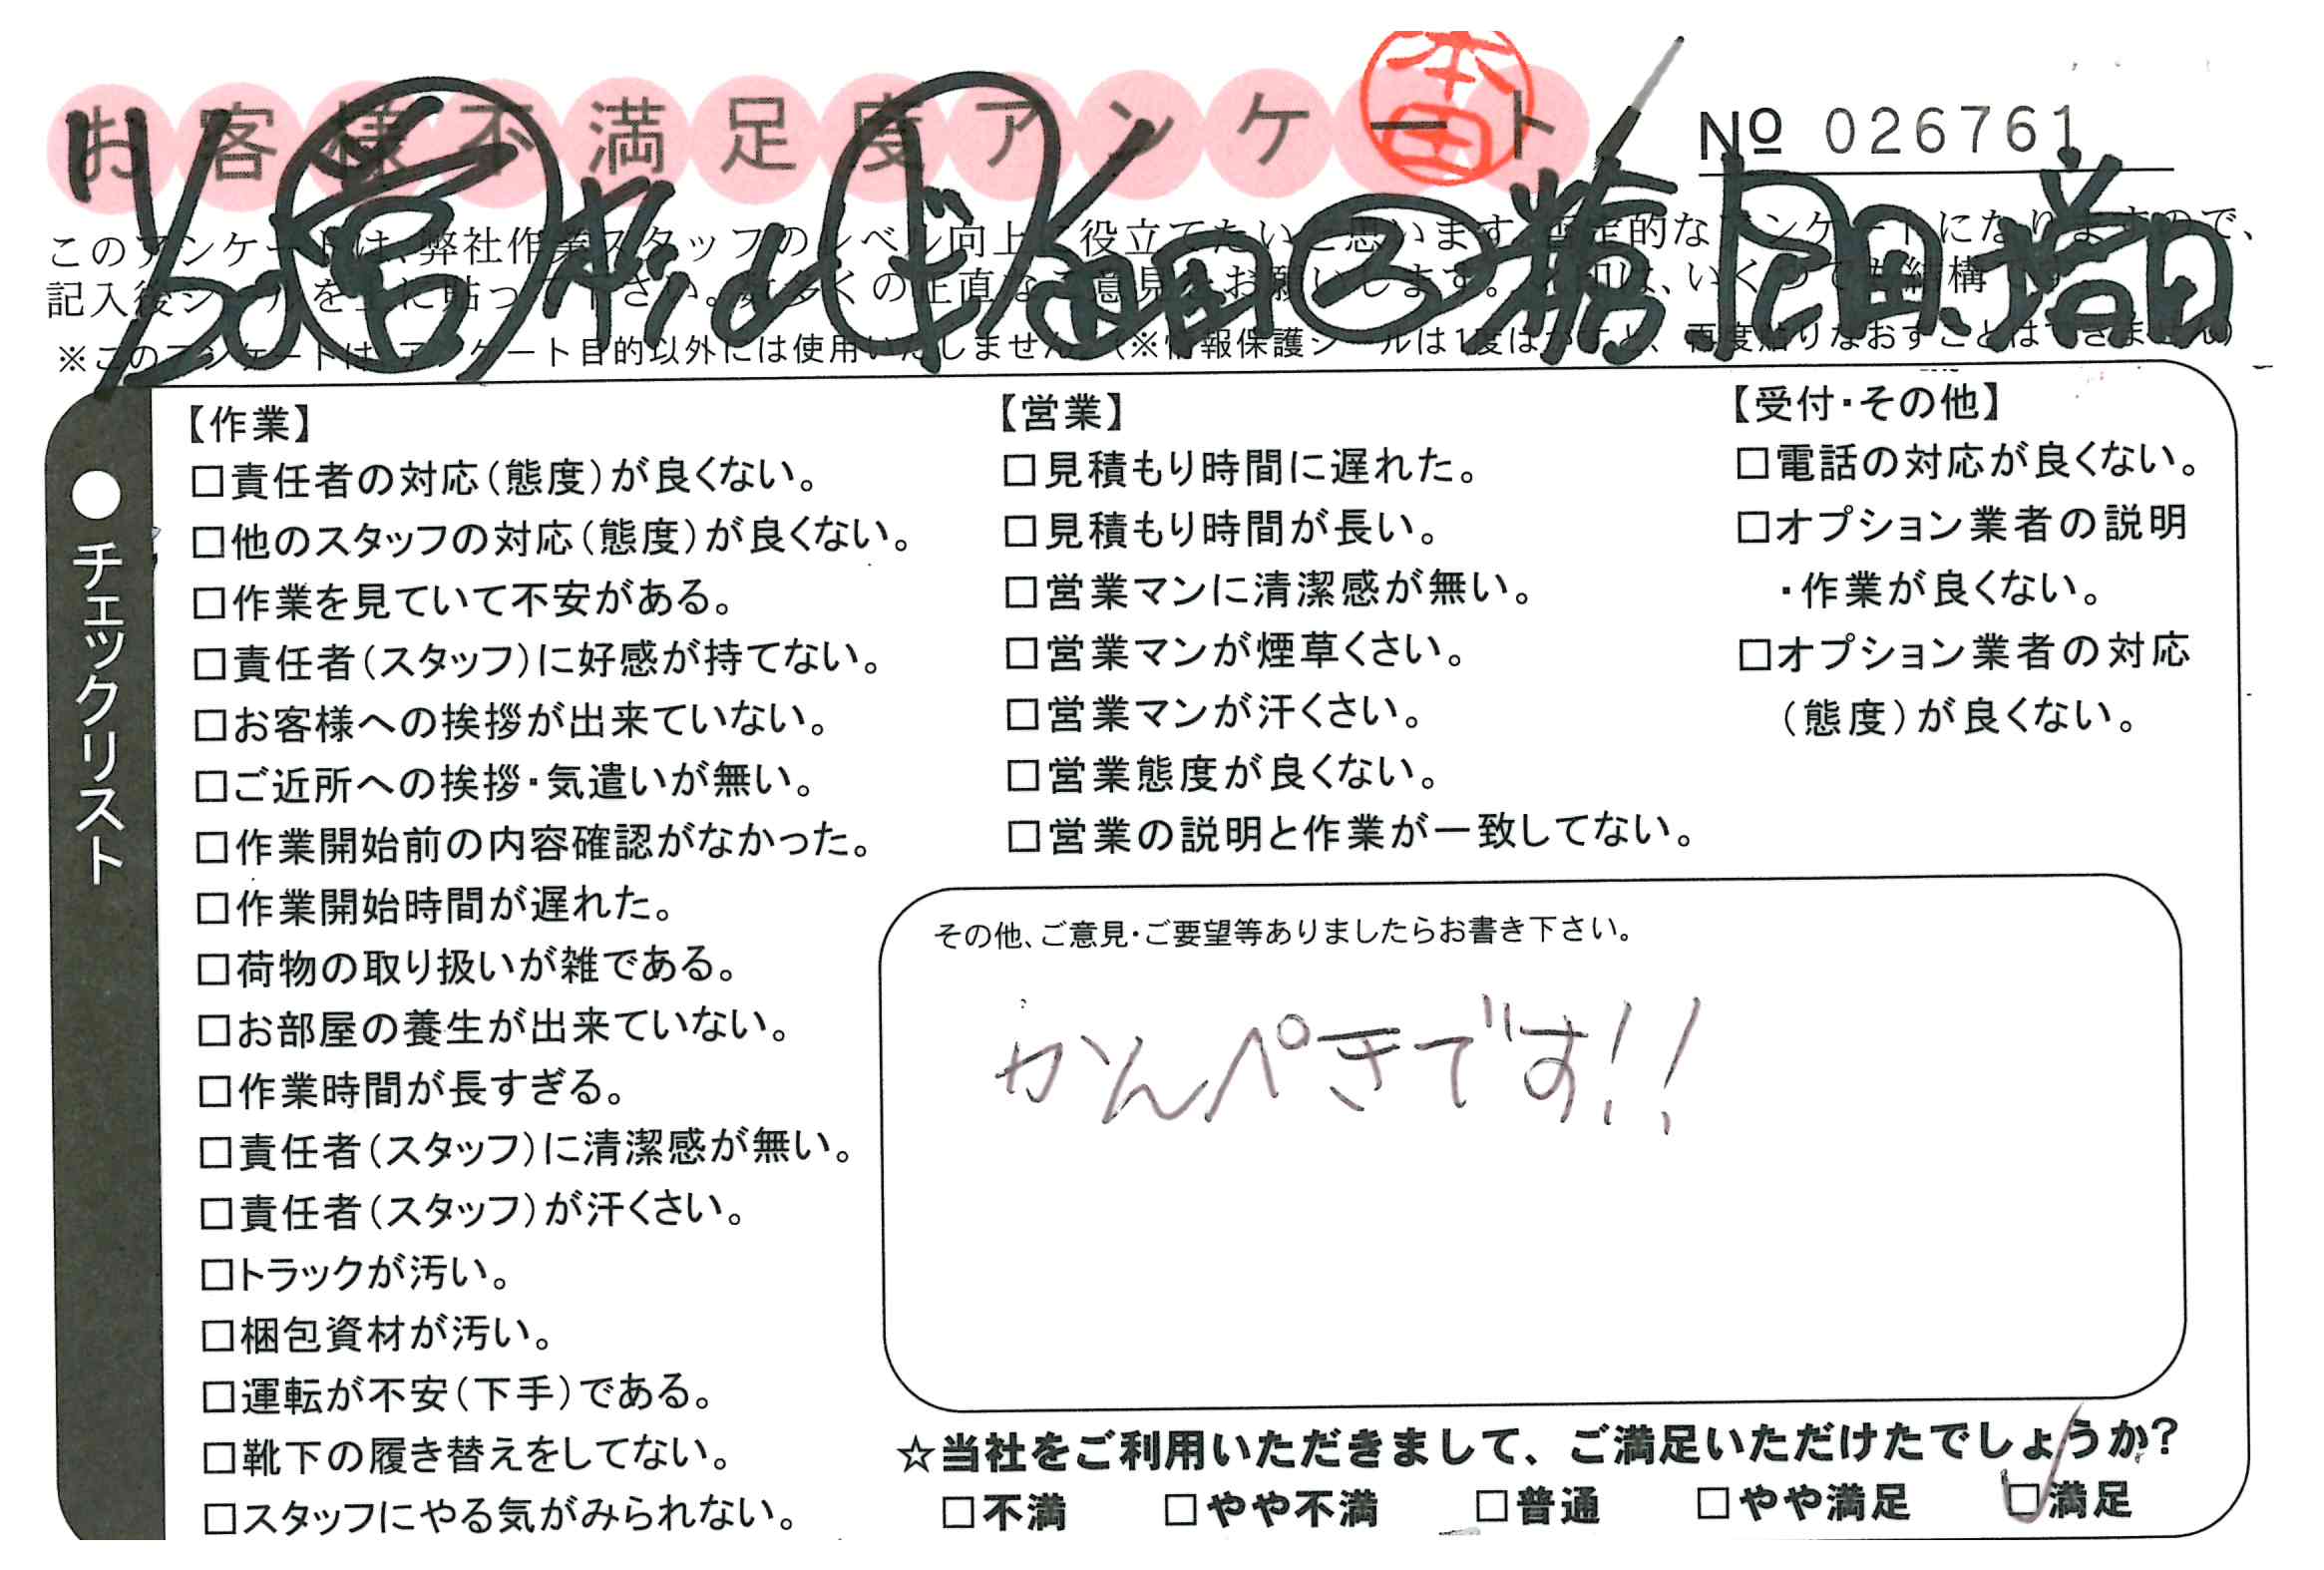 お客様不満足度アンケート
本田
No 026761
このアンケートは、弊社作業スタッフのレベル向上に役立てたいと思います。
※このアンケートは、アンケート目的以外には使用いたしません。(※情報保護シールは1度はがすと、再度貼りなおすことはできません)
●チェックリスト
【作業】
□責任者の対応(態度)が良くない。
□他のスタッフの対応(態度)が良くない。
□作業を見ていて不安がある。
□責任者(スタッフ)に好感が持てない。
□お客様への挨拶が出来ていない。
□ご近所への挨拶・気遣いが無い。
□作業開始前の内容確認がなかった。
□作業開始時間が遅れた。
□荷物の取り扱いが雑である。
□お部屋の養生が出来ていない。
□作業時間が長すぎる。
□責任者(スタッフ)に清潔感が無い。
□責任者(スタッフ)が汗くさい。
□トラックが汚い。
□梱包資材が汚い。
□運転が不安(下手)である。
□靴下の履き替えをしてない。
□スタッフにやる気がみられない。
【営業】
□見積もり時間に遅れた。
□見積もり時間が長い。
□営業マンに清潔感が無い。
□営業マンが煙草くさい。
□営業マンが汗くさい。
□営業態度が良くない。
□営業の説明と作業が一致してない。
【受付・その他】
□電話の対応が良くない。
□オプション業者の説明
・作業が良くない。
□オプション業者の対応
(態度)が良くない。
その他、ご意見・ご要望等ありましたらお書き下さい。
かんぺきです!!
☆当社をご利用いただきまして、ご満足いただけたでしょうか?
□不満 □やや不満 □普通 □やや満足 □満足